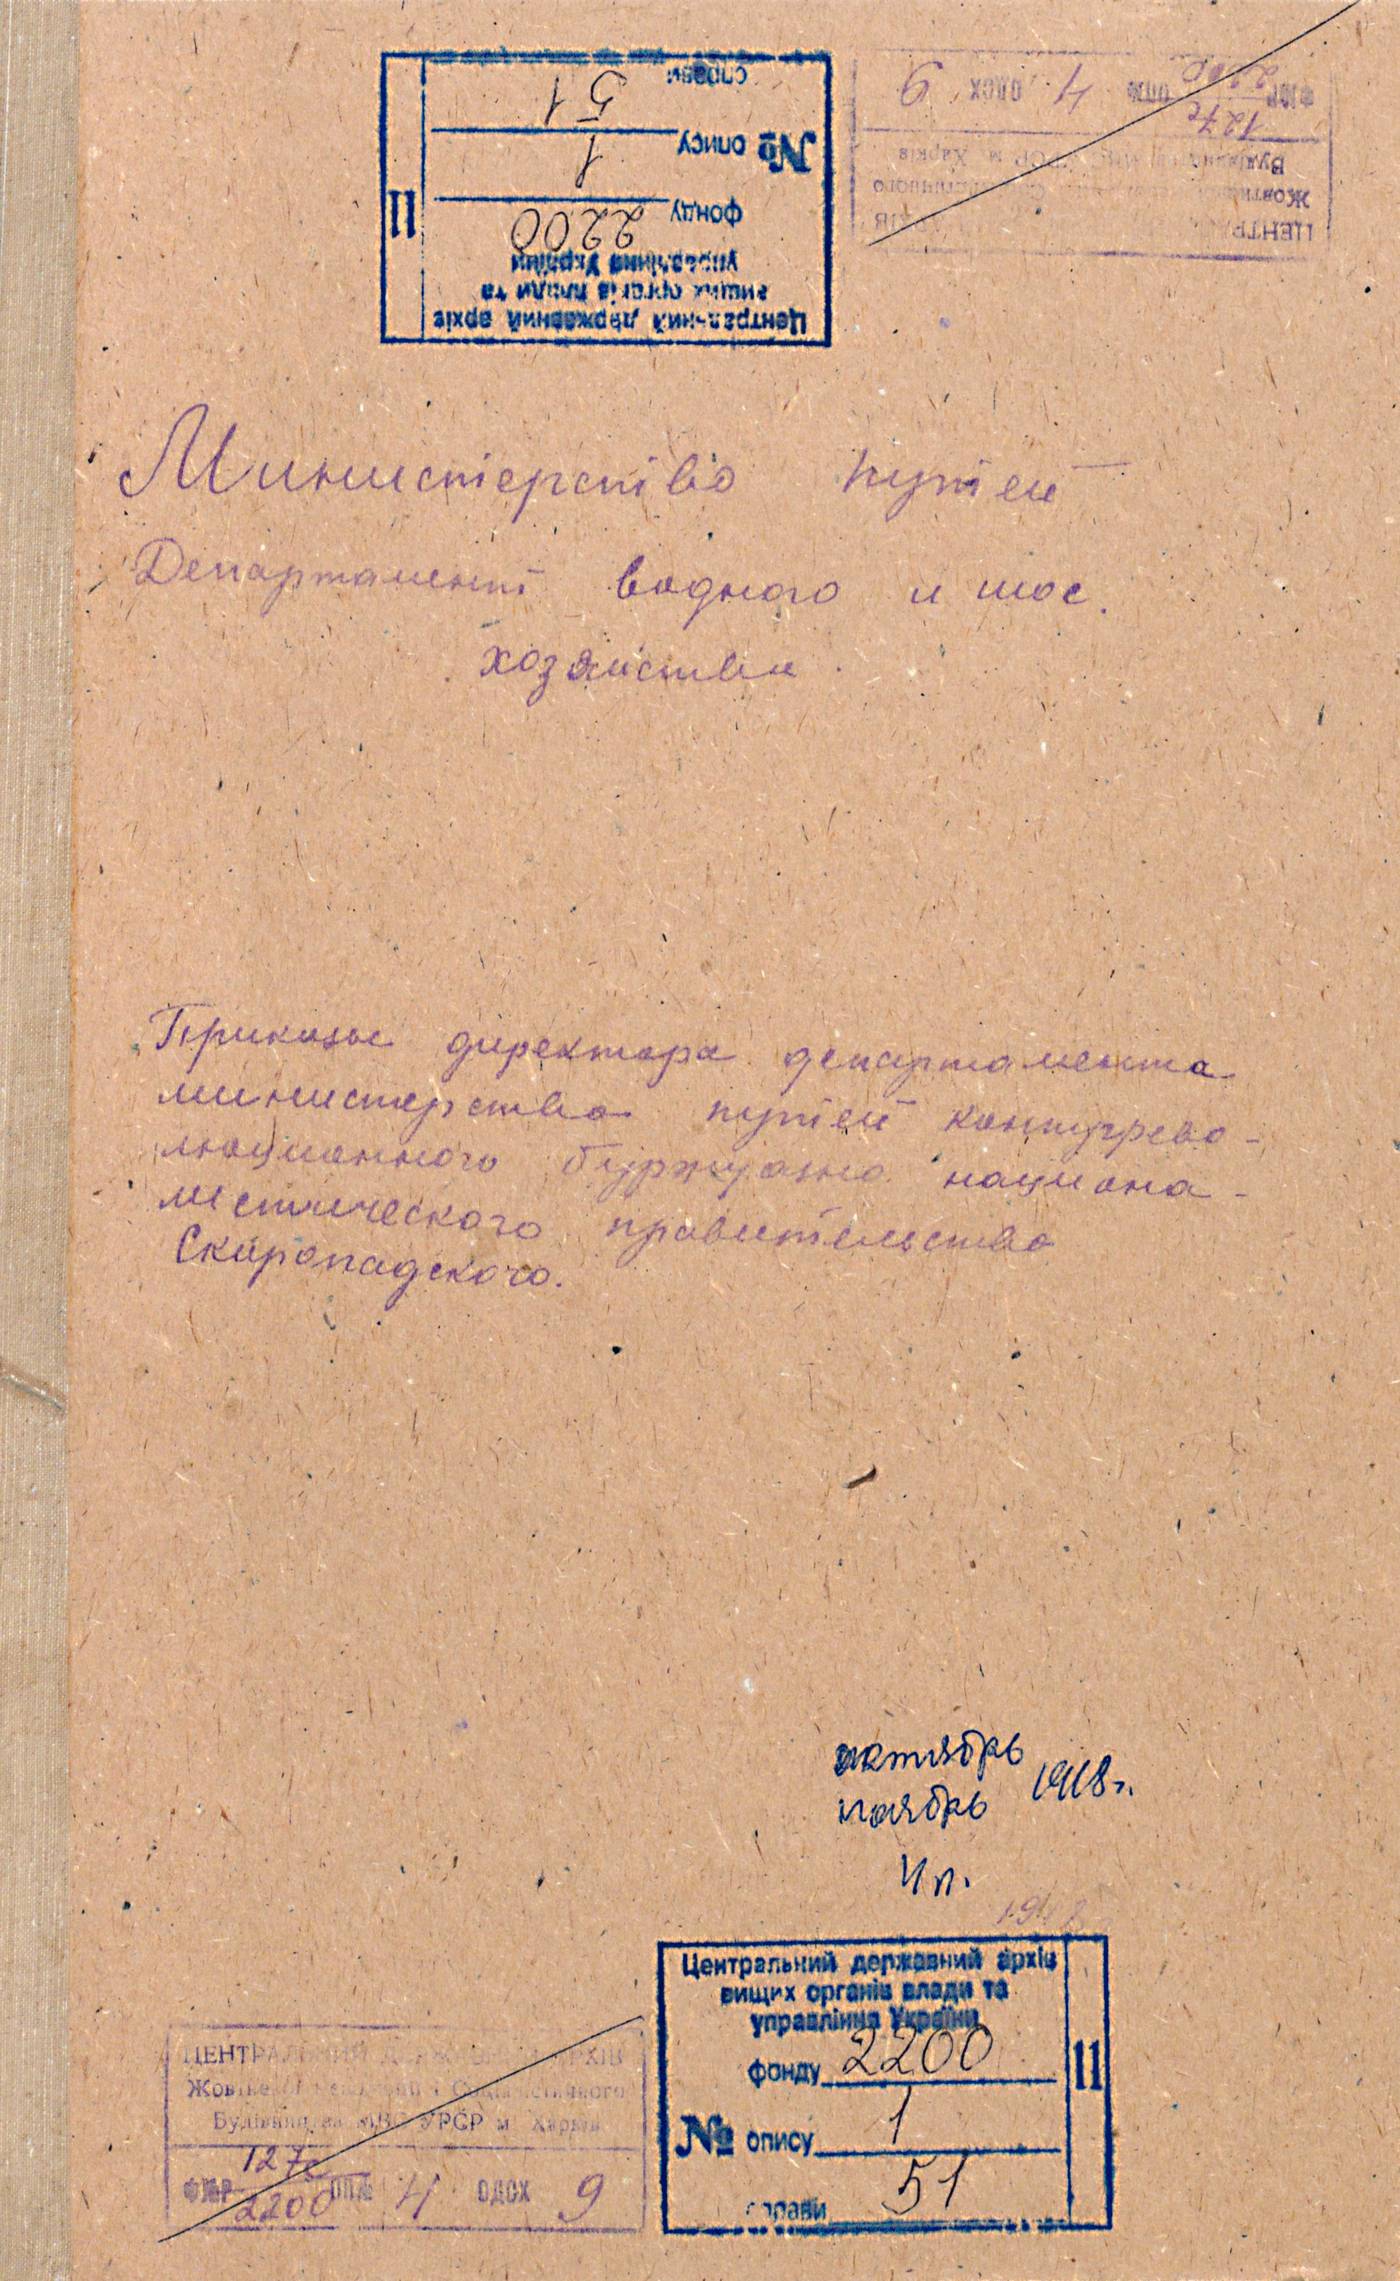 Центральний державний архів
вищих органів влади та
управління України
фонду 2200
№ опису 1
справи 51
11
ЦЕНТР
Жовтн
м. Харків
127с
Ф№Р 2200 ОП№ 4 ОДСХ 9
Министерство путей
Департамент водного и шос.
хозяйства.
Приказы директора департамента
министерства путей контрево-
люционного буржуазно национа-
листического правительства
Скоропадского.
октябрь
ноябрь 1918 г.
4 л.
Центральний державний архів
вищих органів влади та
управління України
фонду 2200
№ опису 1
справи 51
11
ЦЕНТРАЛЬНИЙ ДЕРЖАВНИЙ АРХІВ
Жовтневої революції і Соціалістичного
Будівництва МВС УРСР м. Харків
127с
Ф№Р 2200 ОП№ 4 ОДСХ 9